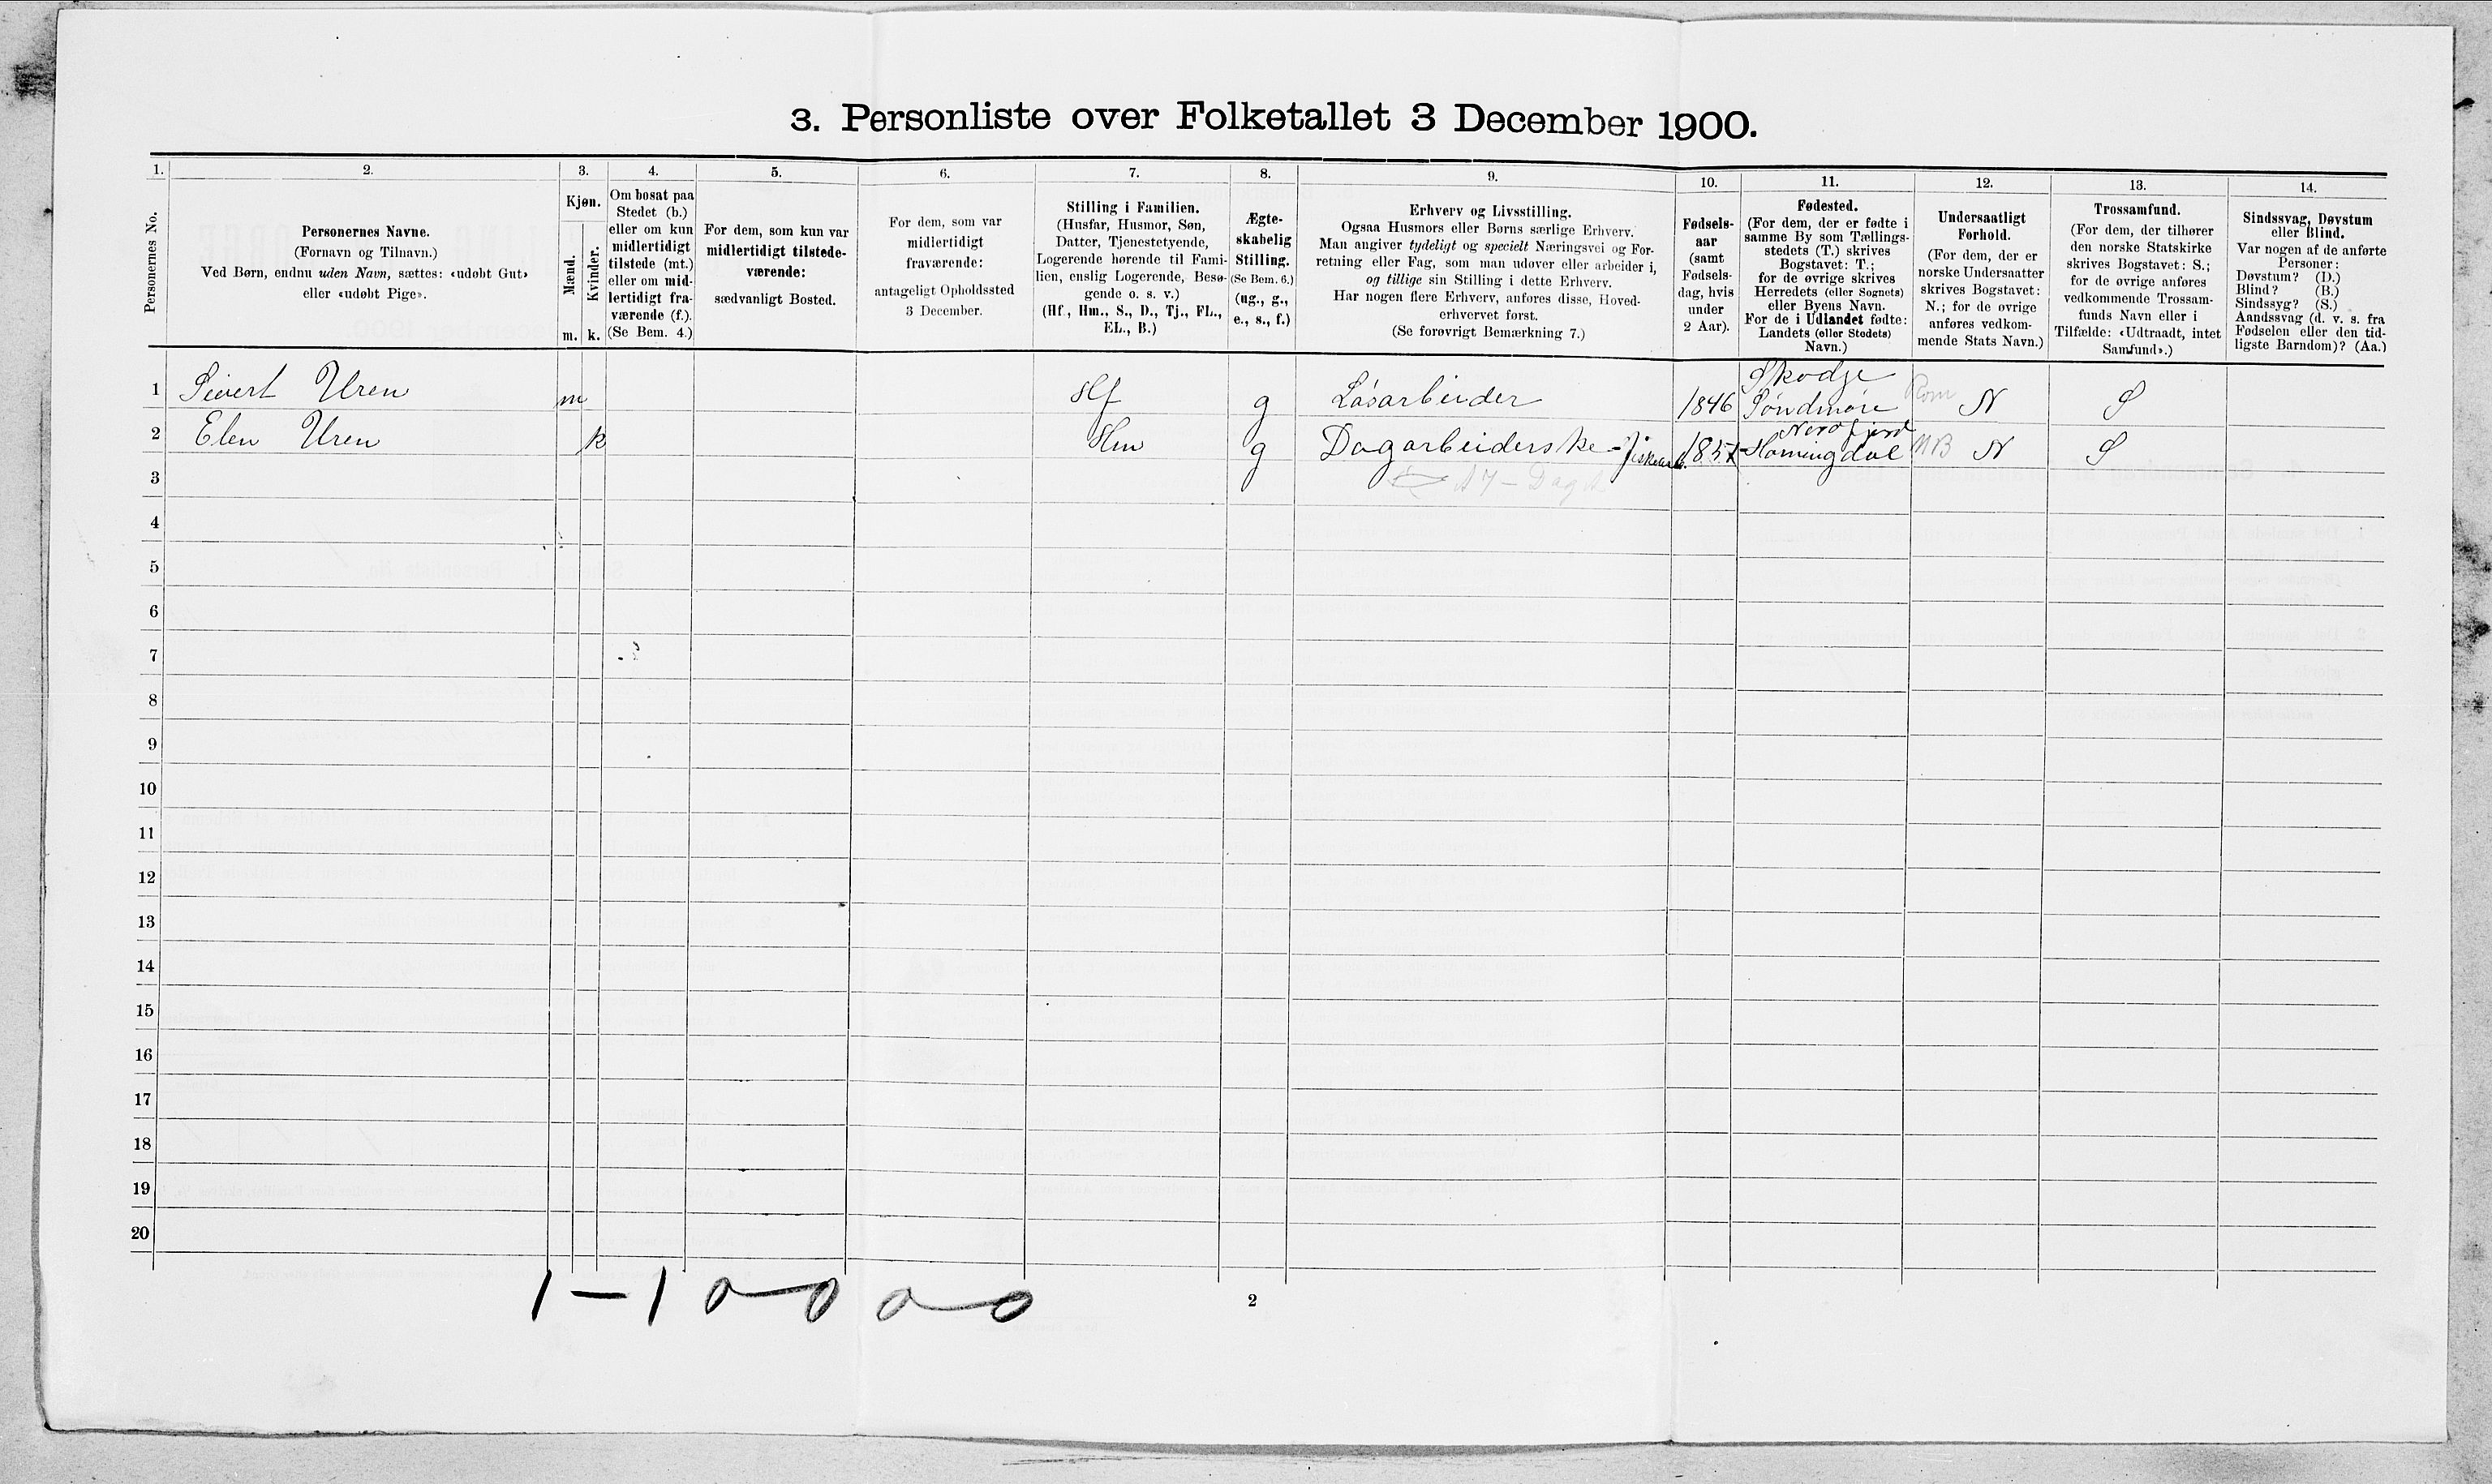 3. Personliste over Folketallet 3 December 1900.
1. 2. 3. 4. 5. 6. 7. 8. 9. 10. 11. 12. 13. 14.
Personernes No.
Personernes Navne.
(Fornavn og Tilnavn.)
Ved Børn, endnu uden Navn, sættes: «udøbt Gut»
eller «udøbt Pige».
Kjøn.
Mænd.
Kvinder.
m. k.
Om bosat paa
Stedet (b.)
eller om kun
midlertidigt
tilstede (mt.)
eller om mid-
lertidigt fra-
værende (f.).
(Se Bem. 4.)
For dem, som kun var
midlertidigt tilstede-
værende:
sædvanligt Bosted.
For dem, som var
midlertidigt
fraværende:
antageligt Opholdssted
3 December.
Stilling i Familien.
(Husfar, Husmor, Søn,
Datter, Tjenestetyende,
Logerende hørende til Fami-
lien, enslig Logerende, Besø-
gende o. s. v.)
(Hf., Hm., S., D., Tj., FL.,
EL., B.)
Ægte-
skabelig
Stilling.
(Se Bem. 6.)
(ug., g.,
e., s., f.)
Erhverv og Livsstilling.
Ogsaa Husmors eller Børns særlige Erhverv.
Man angiver tydeligt og specielt Næringsvei og For-
retning eller Fag, som man udøver eller arbeider i,
og tillige sin Stilling i dette Erhverv.
Har nogen flere Erhverv, anføres disse, Hoved-
erhvervet først.
(Se forøvrigt Bemærkning 7.)
Fødsels-
aar
(samt
Fødsels-
dag, hvis
under
2 Aar).
Fødested.
(For dem, der er fødte i
samme By som Tællings-
stedets (T.) skrives
Bogstavet: T.;
for de øvrige skrives
Herredets (eller Sognets)
eller Byens Navn.
For de i Udlandet fødte:
Landets (eller Stedets)
Navn.)
Undersaatligt
Forhold.
(For dem, der er
norske Undersaatter
skrives Bogstavet:
N.; for de øvrige
anføres vedkom-
mende Stats Navn.)
Trossamfund.
(For dem, der tilhører
den norske Statskirke
skrives Bogstavet: S.;
for de øvrige anføres
vedkommende Trossam-
funds Navn eller i
Tilfælde: «Udtraadt, intet
Samfund».)
Sindssvag, Døvstum
eller Blind.
Var nogen af de anførte
Personer:
Døvstum? (D.)
Blind? (B.)
Sindssyg? (S.)
Aandssvag (d. v. s. fra
Fødselen eller den tid-
ligste Barndom)? (Aa.)
Skodje
1 Sivert Uren m Hf g Løsarbeider 1846 Søndmøre Rom N S
Nordfjord
2 Elen Uren k Hm g Dagarbeiderske - Fiskearb. 1857 Horningdal NB N S
3
4
5
6
7
8
9
10
11
12
13
14
15
16
17
18
19
20
1 – 1 0 – 0 0 – 0
2